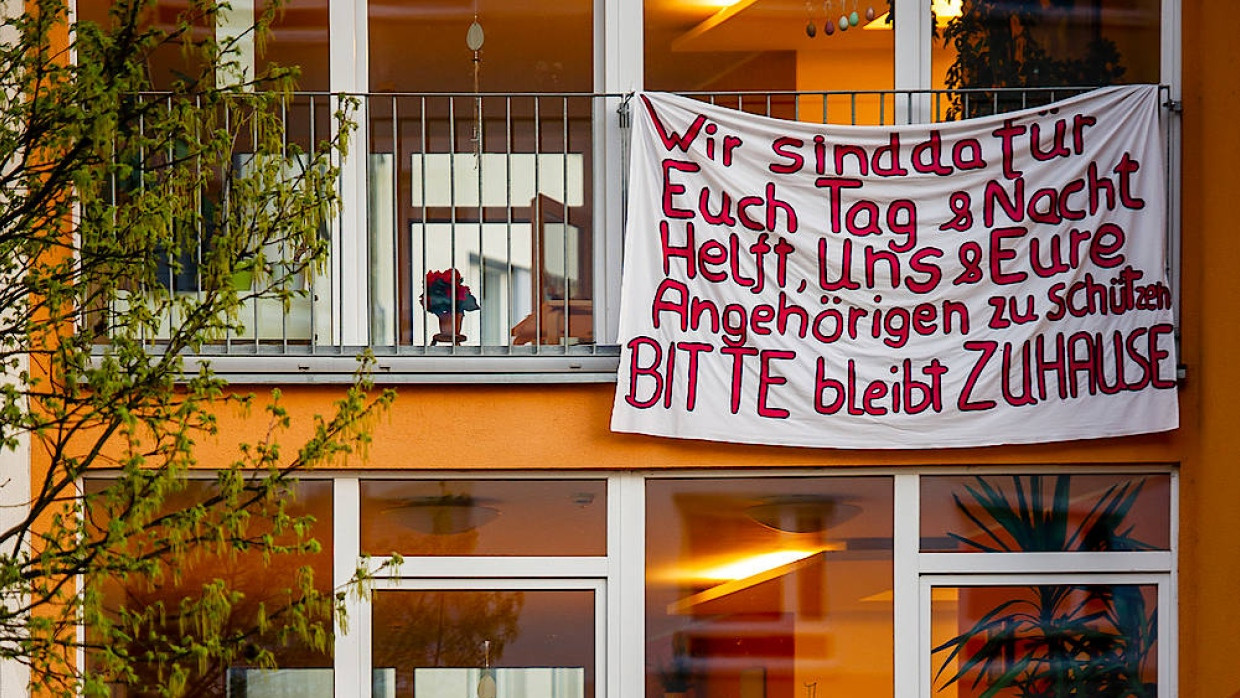 Wir sind da für
Euch Tag & Nacht
Helft, Uns & Eure
Angehörigen zu schützen
BITTE bleibt ZUHAUSE